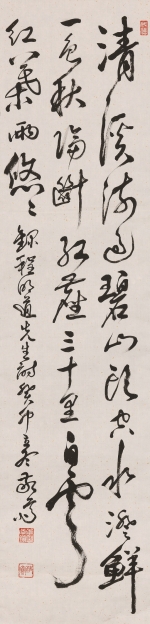 清溪流過碧山頭空水澄鮮
一色秋隔斷紅塵三十里白雲
紅葉兩悠〻
錄程明道先生詩癸卯